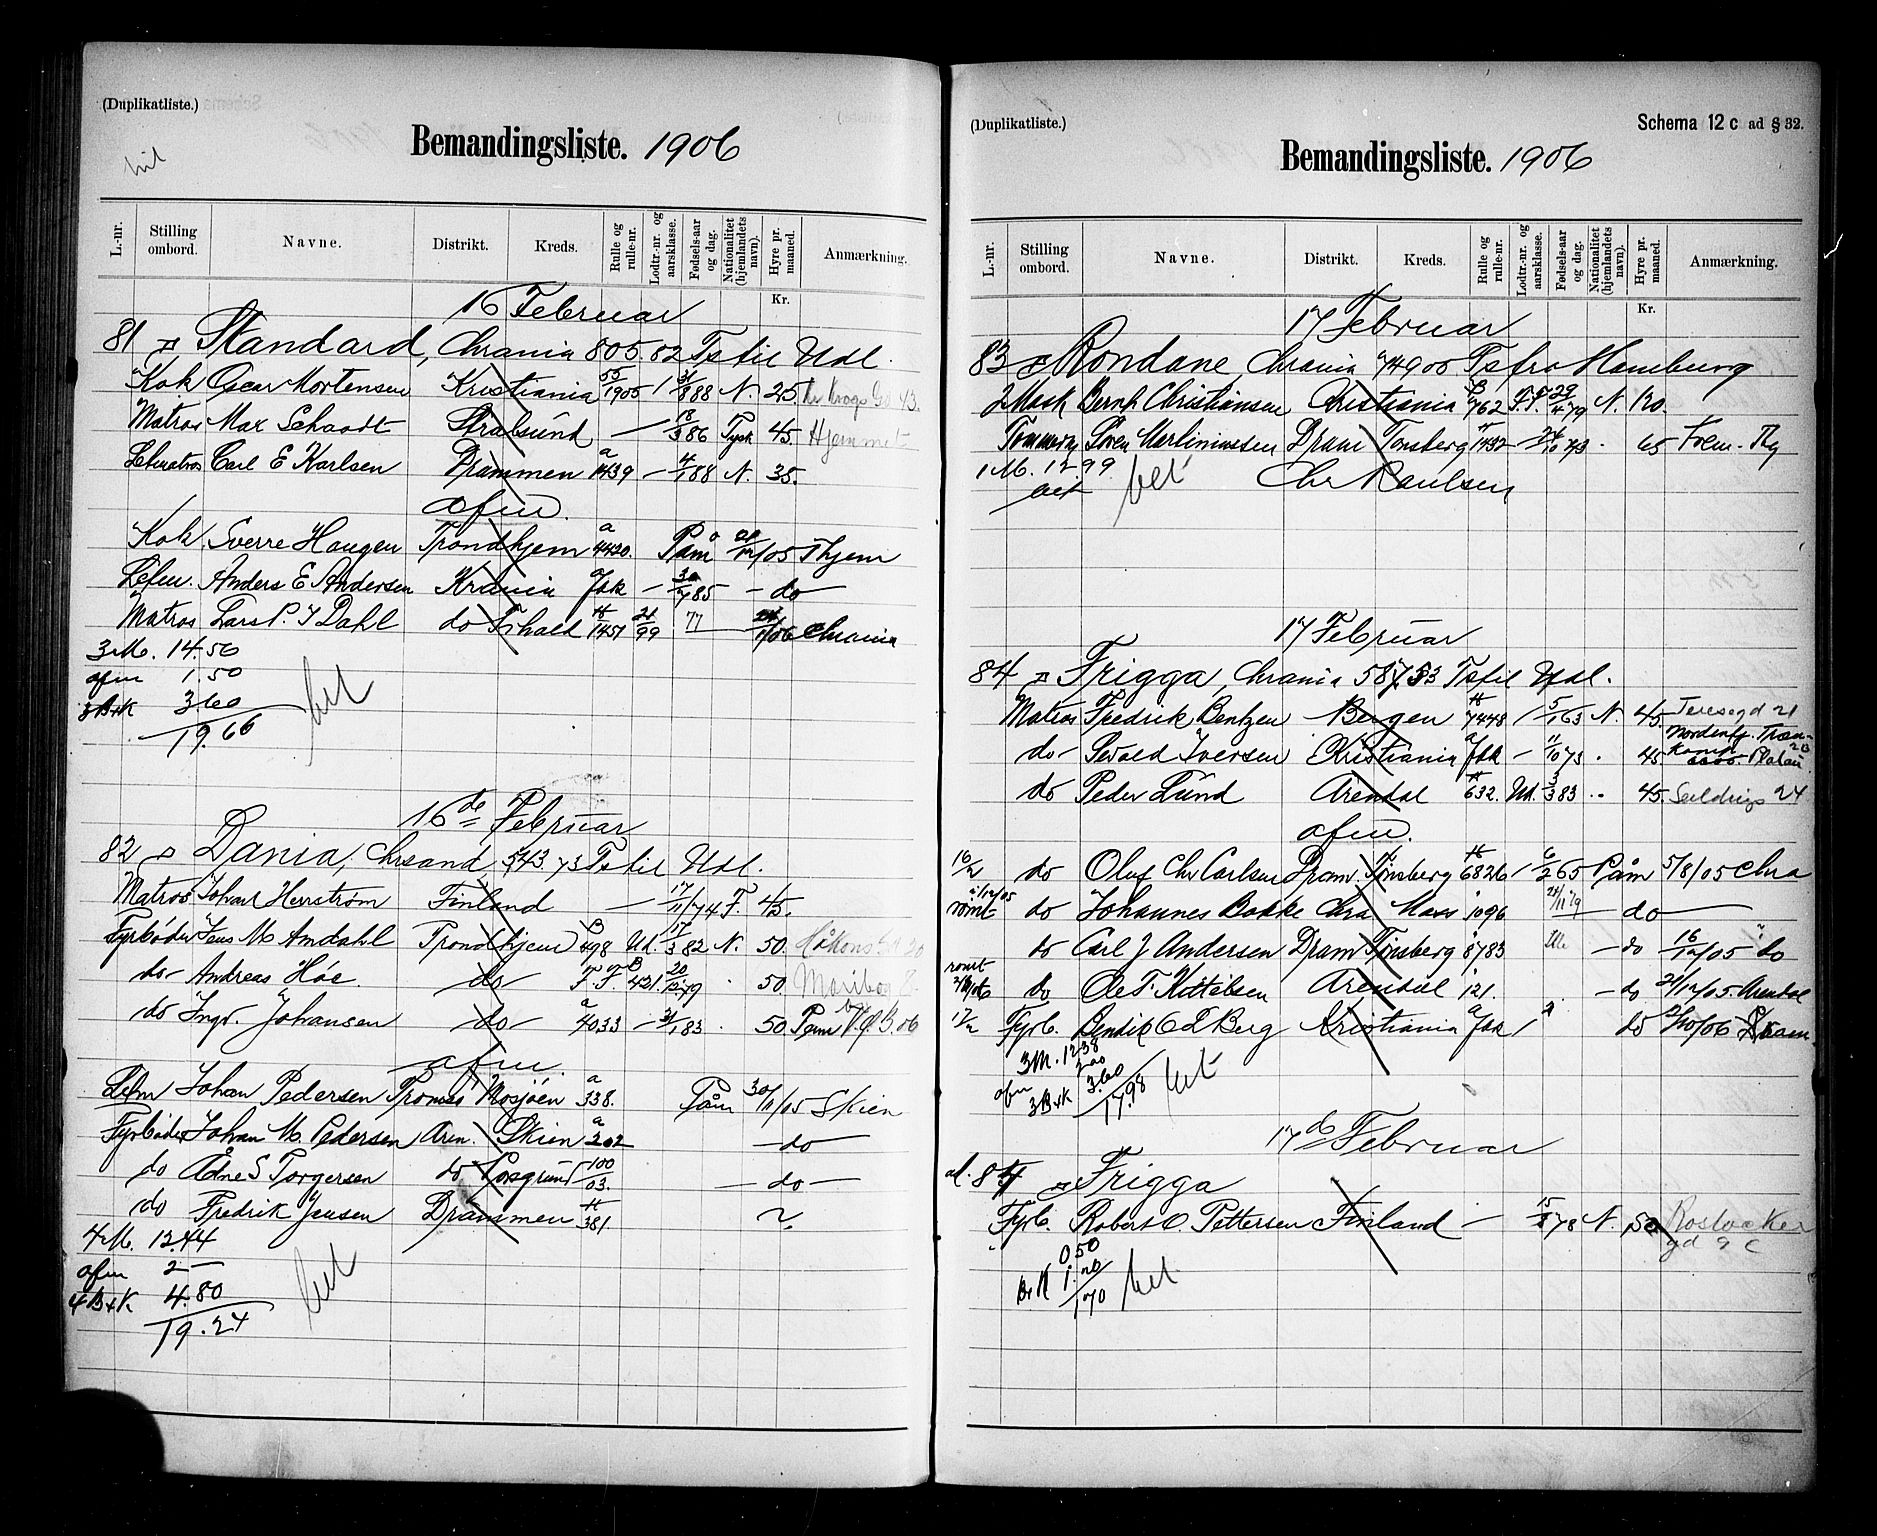 (Duplikatliste.)
Bemandingsliste. 1906
L.-nr.
Stilling ombord.
Navne.
Distrikt.
Kreds.
Rulle og rulle-nr.
Lodtr.-nr. og aarsklasse.
Fødsels-aar og dag.
Nationalitet (hjemlandets navn).
Hyre pr. maaned.
Anmærkning.
Kr.
16 Februar
81 Standard, Chrania 805.82 Ts til Udl.
Kok Oscar Mortensen Kristiania 55/1905 1 31/8 88 N. 25.
Matros Max Schaadt Stralsund — 18/3 86 Tysk 45. Hjemmet
Letmatros Carl E Karlsen Drammen a 1439 — 4/1 88 N. 35.
afm.
Kok Sverre Haugen Trondhjem a 4420. Påm 21/12/05 Thjem
Letm. Anders E Andersen Krania fsk — 30/7 85 — do —
Matros Lars P. I Dahl do Frhald H/1457 21/99 77 — 24/1/06 Chrania
3 M. 14.56
afm 1.50
3 B+K 3.60
19.66
bet
16de Februar
82 Dania, Chrsand, 543.73 Ts til Udl.
Matros Johan Herrström Finland — 17/11/74 F. 45.
Fyrbøder Jens M Amdahl Trondhjem B 498 Ud. 17/3 82 N. 50.
do Andreas Høe do F.F. B 421. 20/12 79 50.
do Ingv. Johansen do a 4033 — 31/1 83 . 50.
afm.
Letm Johan Pedersen Tromsö Mosjöen a 338. Påm 30/11/05 Skien
Fyrbøder Johan M. Pedersen Aren. Skien a 202 — do —
do Ådne S Torgersen do Porsgrund 100/03. — do —
do Fredrik Jensen Drammen H 381
4 M. 12.44
afm 2 —
4 B+K 4.80
19.24
bet
(Duplikatliste.)
Schema 12 c ad § 32.
Bemandingsliste. 1906
L.-nr.
Stilling ombord.
Navne.
Distrikt.
Kreds.
Rulle og rulle-nr.
Lodtr.-nr. og aarsklasse.
Fødsels-aar og dag.
Nationalitet (hjemlandets navn).
Hyre pr. maaned.
Anmærkning.
Kr.
17 Februar
83 Rondane, Chrania 749 00 Ts fra Hamburg
2 Mask Bernh Christiansen Christiania B 762 F.F. 29/4 79 N. 120.
Tømmerm Sören Martiniussen Dram Tönsberg H 1432 — 24/10 73 . 65 Frem-
1 M. 12.99 bet Chr Paulsen
bet
17 Februar
84 Frigga, Chrania 587.53 Ts til Udl.
Matros Fredrik Bentzen Bergen H 7448 1 5/1 63 N. 45.
do Sevald Iversen Kristiania fsk — 11/10 73 . 45.
do Peder Lund Arendal H 632. Ud. 3/3 83 .. 45. 24
afm.
16/2 do Oluf Chr Carlsen Dram. Tönsberg H 6826 1 6/2 65 Påm 5/8/05 Chra
römt do Johannes Bakke Chra Moss 1096 — do —
do Carl J Andersen Dram Tönsberg 8783 — do 16/12/05 do
römt do Ole T. Kittelsen Arendal 121. — do 21/12/05. Arendal
17/2 Fyrb. Bendik O L Berg Kristiania fsk 1 do
3 M. 12.38
afm 2.00
3 B+K 3.60
17.98 bet
17de Februar
ad. 84 Frigga
Fyrb. Robert O. Pettersen Finland — 15/8 78 N. 50 Rostocker
gd 9 c
0.50
B+K 1.20
1.70 bet